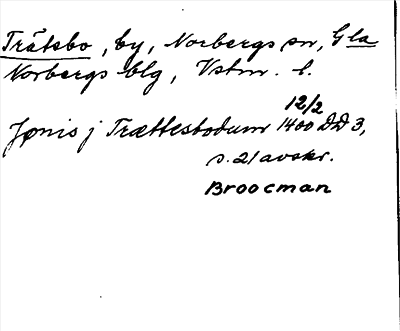 Trätsbo, by, Norbergs sn, Gla
Norbergs blg, Vstm. l.
12/2
Jønis j Trættesbodum 1400 DD 3,
s. 21 avskr.
Broocman